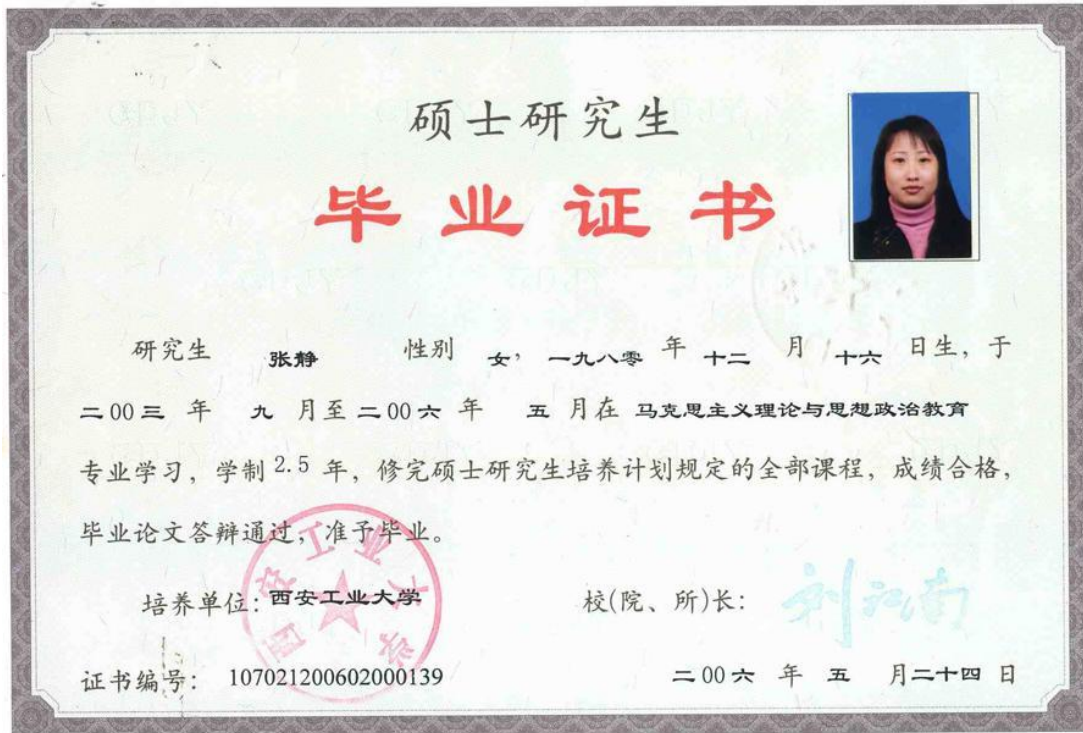 硕士研究生
毕业证书
研究生 张静 性别 女， 一九八零 年 十二 月 十六 日生，于
二00三 年 九 月至 二00六 年 五 月在 马克思主义理论与思想政治教育
专业学习，学制 2.5 年，修完硕士研究生培养计划规定的全部课程，成绩合格，
毕业论文答辩通过，准予毕业。
西安工业大学
培养单位：西安工业大学 校(院、所)长：
证书编号： 107021200602000139 二00六 年 五 月二十四 日